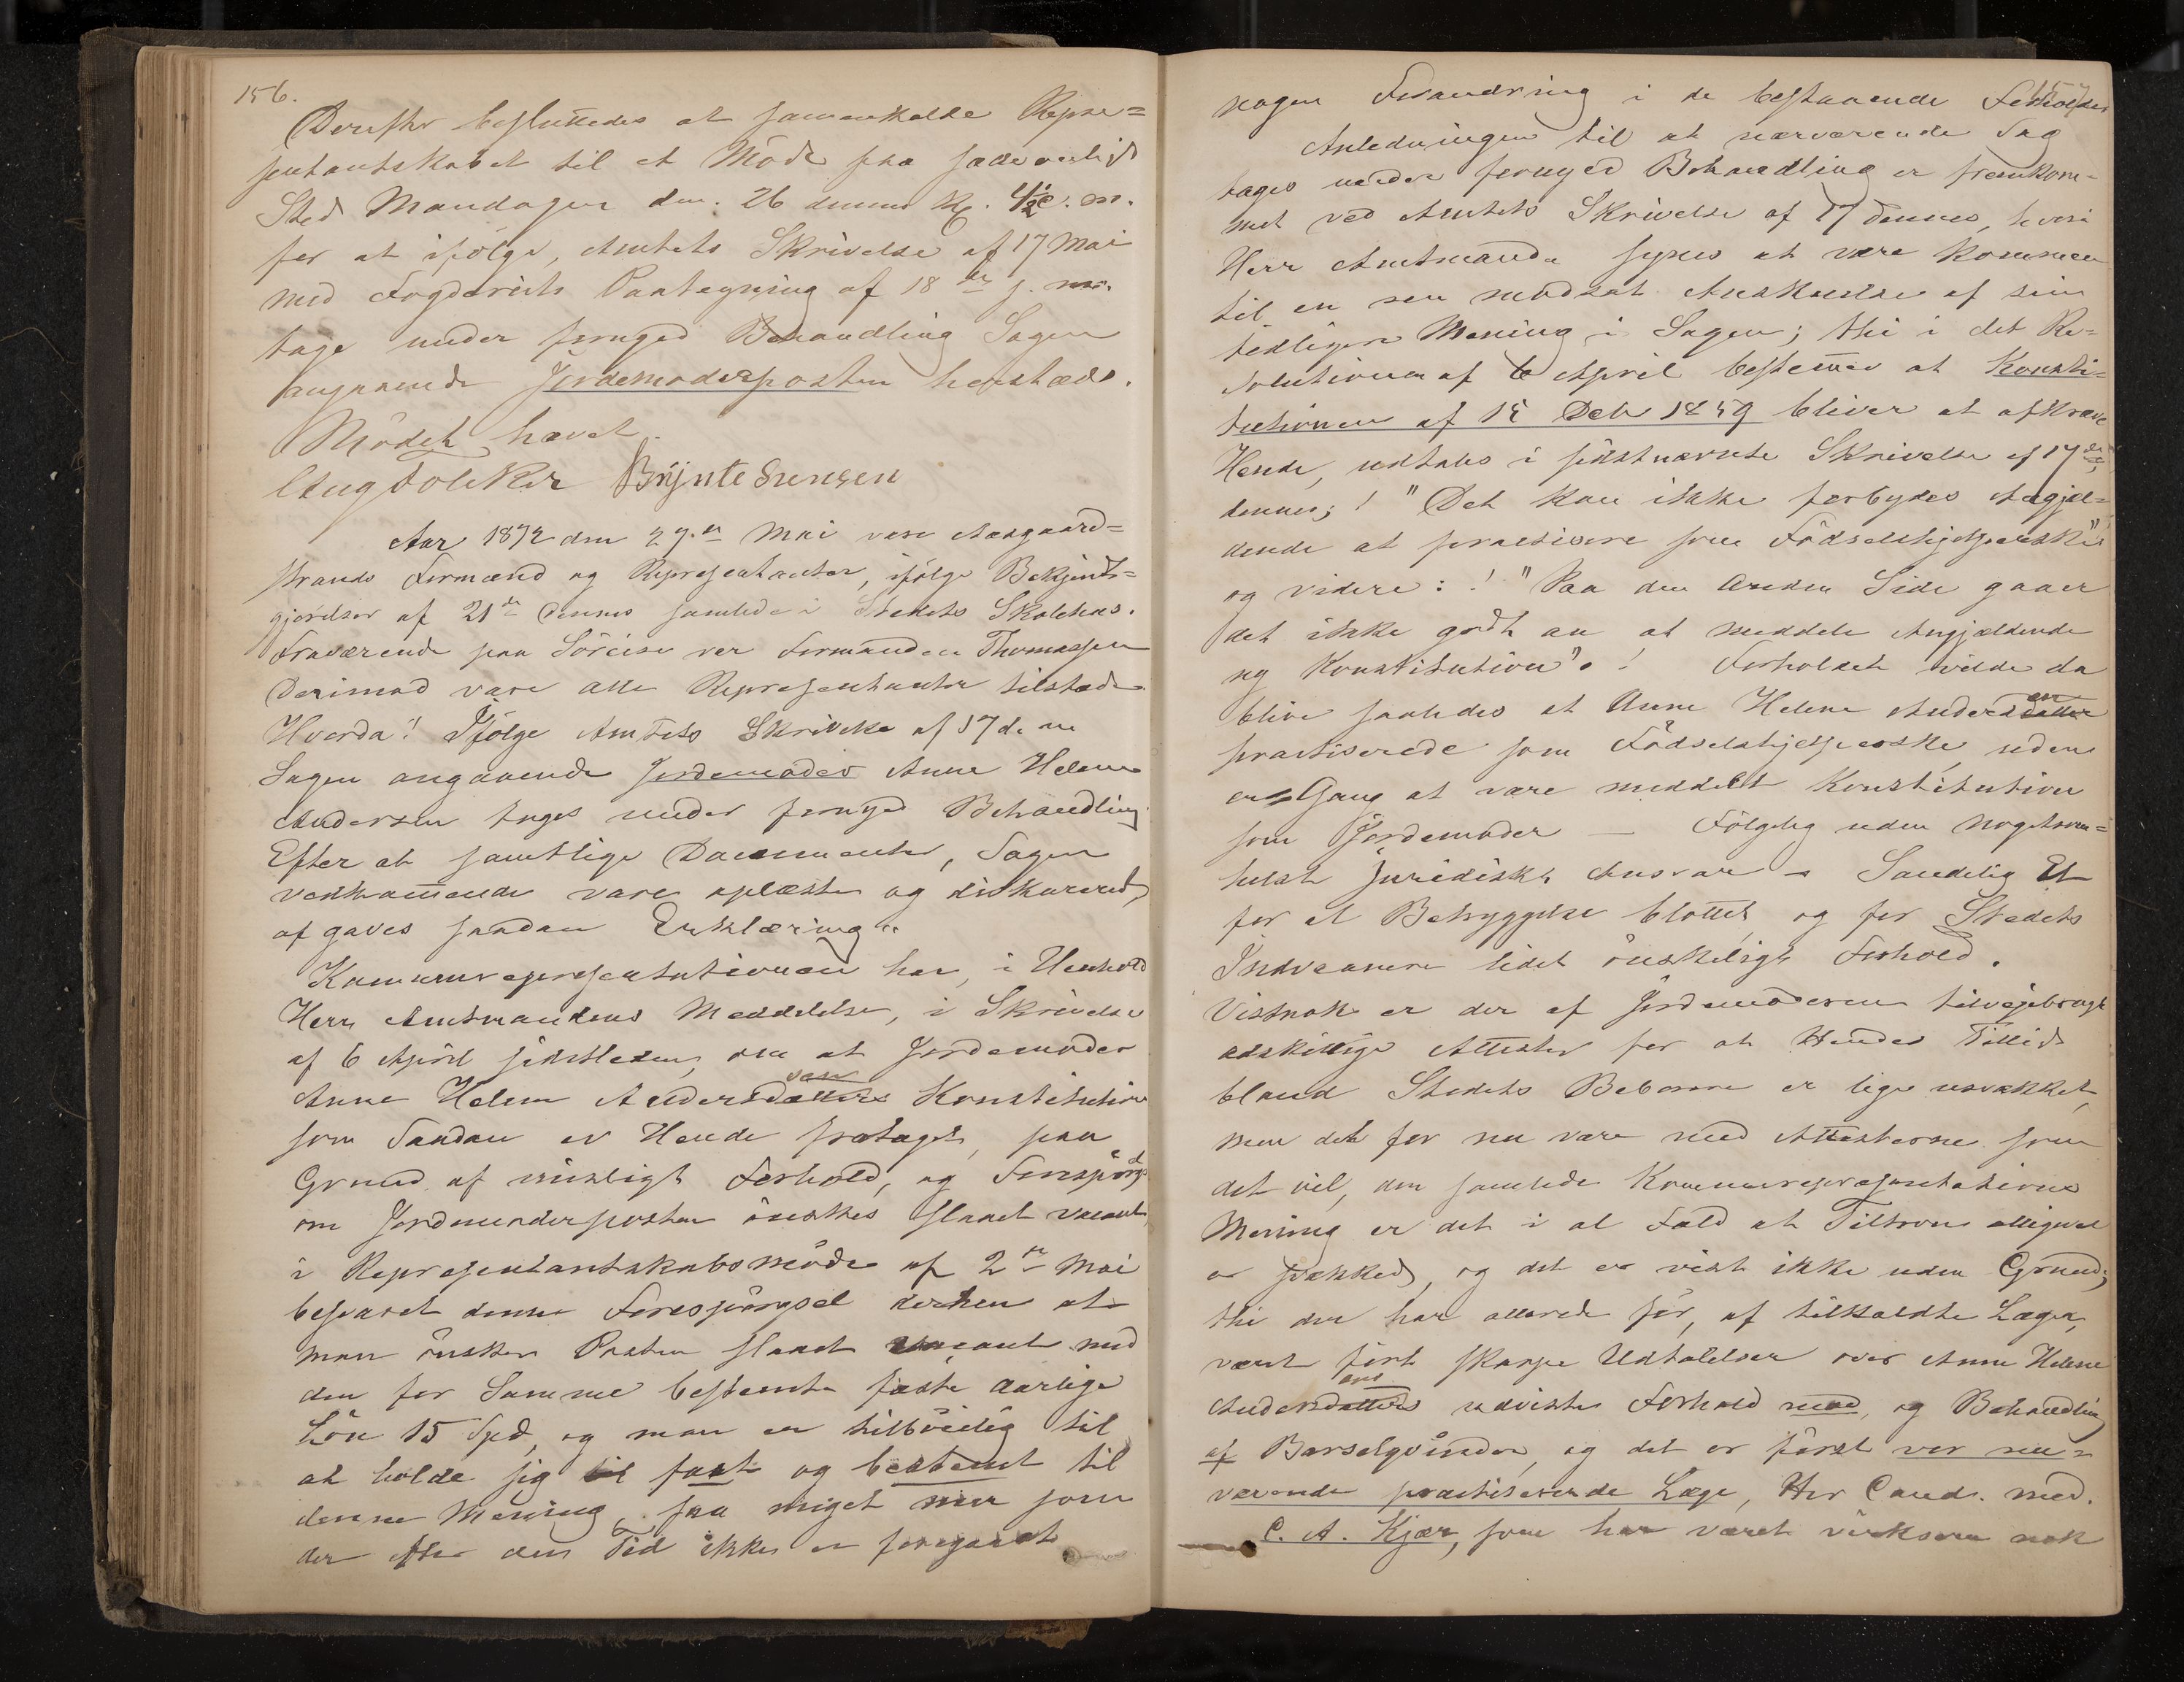 156.
Derefter besluttedes at sammenkalde Repræ=
sentantskabet til et Möde paa sædvanligt
Sted Mandagen den. 26 dennes Kl. 4½ e. m.
for at ifölge, Amtets Skrivelse af 17 Mai
med Fogderiets Paategning af 18de s. m.
tage under fornyed Behandling Sagen
angaaende Jordemoderposten hersteds.
Mödet hævet.
Aug Folcker Brynte Svensen
Aar 1872 den 29.de Mai vare Aasgaard=
strands Formænd og Representanter, ifölge Bekjendt=
gjörelser af 21de dennes samlede i Stedets Skolehus.
Fraværende paa Söreise var Formanden Thomassen
Derimod vare alle Representanter tilstæde.
Hvorda! Ifölge Amtets Skrivelse af 17 d. m
Sagen angaaende Jordemoder Anne Helene
Andersen toges under fornyed Behandling
Efter at samtlige Documenter, Sagen
vedkommende vare oplæste og diskuterede,
afgaves saadan Erklæring:
Kommunerepresentationen har, i Henhold
Herr Amtmandens Meddelelse, i Skrivelse
af 6 April sidstleden, om at Jordemoder
Anne Helene Andersdatters Konstitution
som Saadan er Hende frataget, paa
Grund af misligt Forhold, og Forespörgsel
om Jordemoderposten önskes slaaet vacant,
i Representantskabsmöde af 2de Mai
besvaret denne Forespörgsel derhen at
man önsker Posten slaaet vacant med
den for Samme bestemte faste aarlige
Lön 15 Spd, og man er tilböielig til
at holde sig til fast og bestemt til
denne Mening, saa meget mer som
der efter den Tid ikke er foregaaet
nogen Forandring i de bestaaende Forholde
Anledningen til at nærværende Sag
tages under fornyed Behandling er fremkom=
met ved Amtets Skrivelse af 17 dennes, hvori
Herr Amtmanden synes at være kommen
til en sen modsat Anskuelse af sin
tidligere Mening i Sagen; thi i det Re=
solutionen af 6 April bestemmer at Konsti=
tutionen af 15 Debr 1859 bliver at afkræve
Hende, udtales i sidstnævnte Skrivelse af 17de
dennes; ! "Det kan ikke forbydes Angjæl=
dende at practisere som Födselshjelperske"
og videre: ! "Paa den anden Side gaaer
det ikke godt an at meddele Angjældende
ny Konstitution". ! Forholdet vilde da
blive saaledes at Anne Helene Andersdatter
en
practiserede som Födselshjelperske, uden
engang at være meddelt Konstitution
som Jordemoder — Fölgelig uden nogetsom=
helst juridiskt Ansvar – Sandelig Et
for al Betryggelse blottet og for Stedets
Indvaanere lidet önskeligt Forhold.
Vistnok er der af Jordemoderen tilveiebragt
adskillige Attester for at Hendes Tillid
bland Stedets Beboere er lige usvækket,
men det for nu være med Attesterne som
det vil, den samlede Kommunerepresentations
Mening er det i al Fald at Tiltroen alligevel
er svækked, og det er vist ikke uden Grund;
thi der har allerede för, af tilkaldte Læger,
været fört skarpe Udtalelser over Anne Helene
ens
Andersdatters udviste Forhold mod, og Behandling
af Barselqvinder, og det er först vor nu=
værende practiserende Læge, Hr Cand. med.
C. A. Kjær, som har været virksom nok